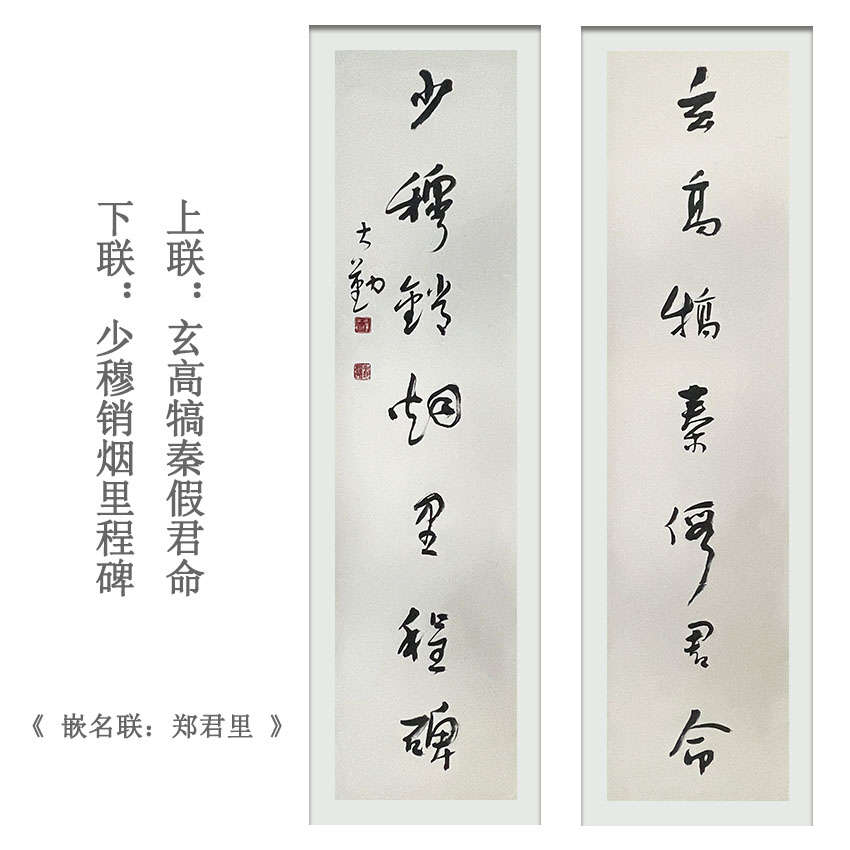 玄高犒秦假君命
少穆銷烟里程碑
大勤
上联：玄高犒秦假君命
下联：少穆销烟里程碑
《 嵌名联：郑君里 》